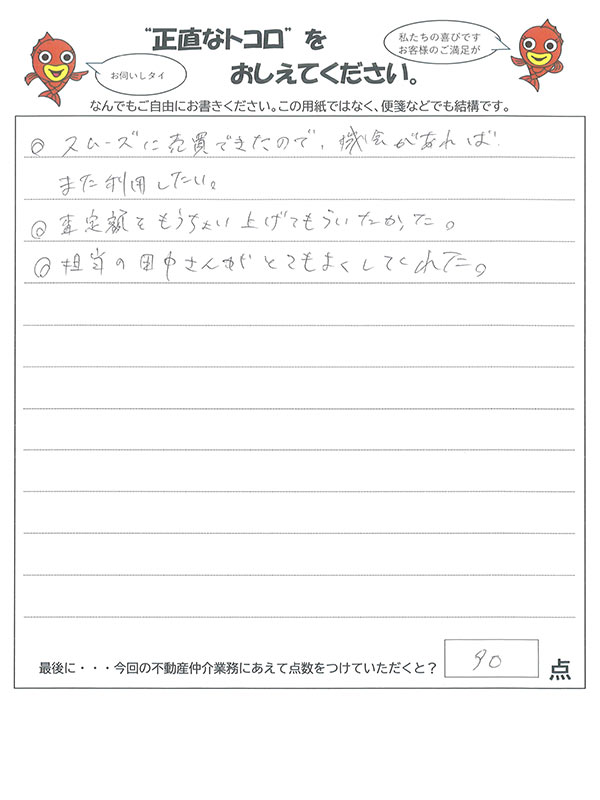 "正直なトコロ" を
おしえてください。
お伺いしタイ
私たちの喜びです
お客様のご満足が
なんでもご自由にお書きください。この用紙ではなく、便箋などでも結構です。
◎ スムーズに売買できたので、機会があれば
また利用したい。
◎ 査定額をもうちょい上げてもらいたかった。
◎ 担当の田中さんがとてもよくしてくれた。
最後に・・・今回の不動産仲介業務にあえて点数をつけていただくと？
90
点